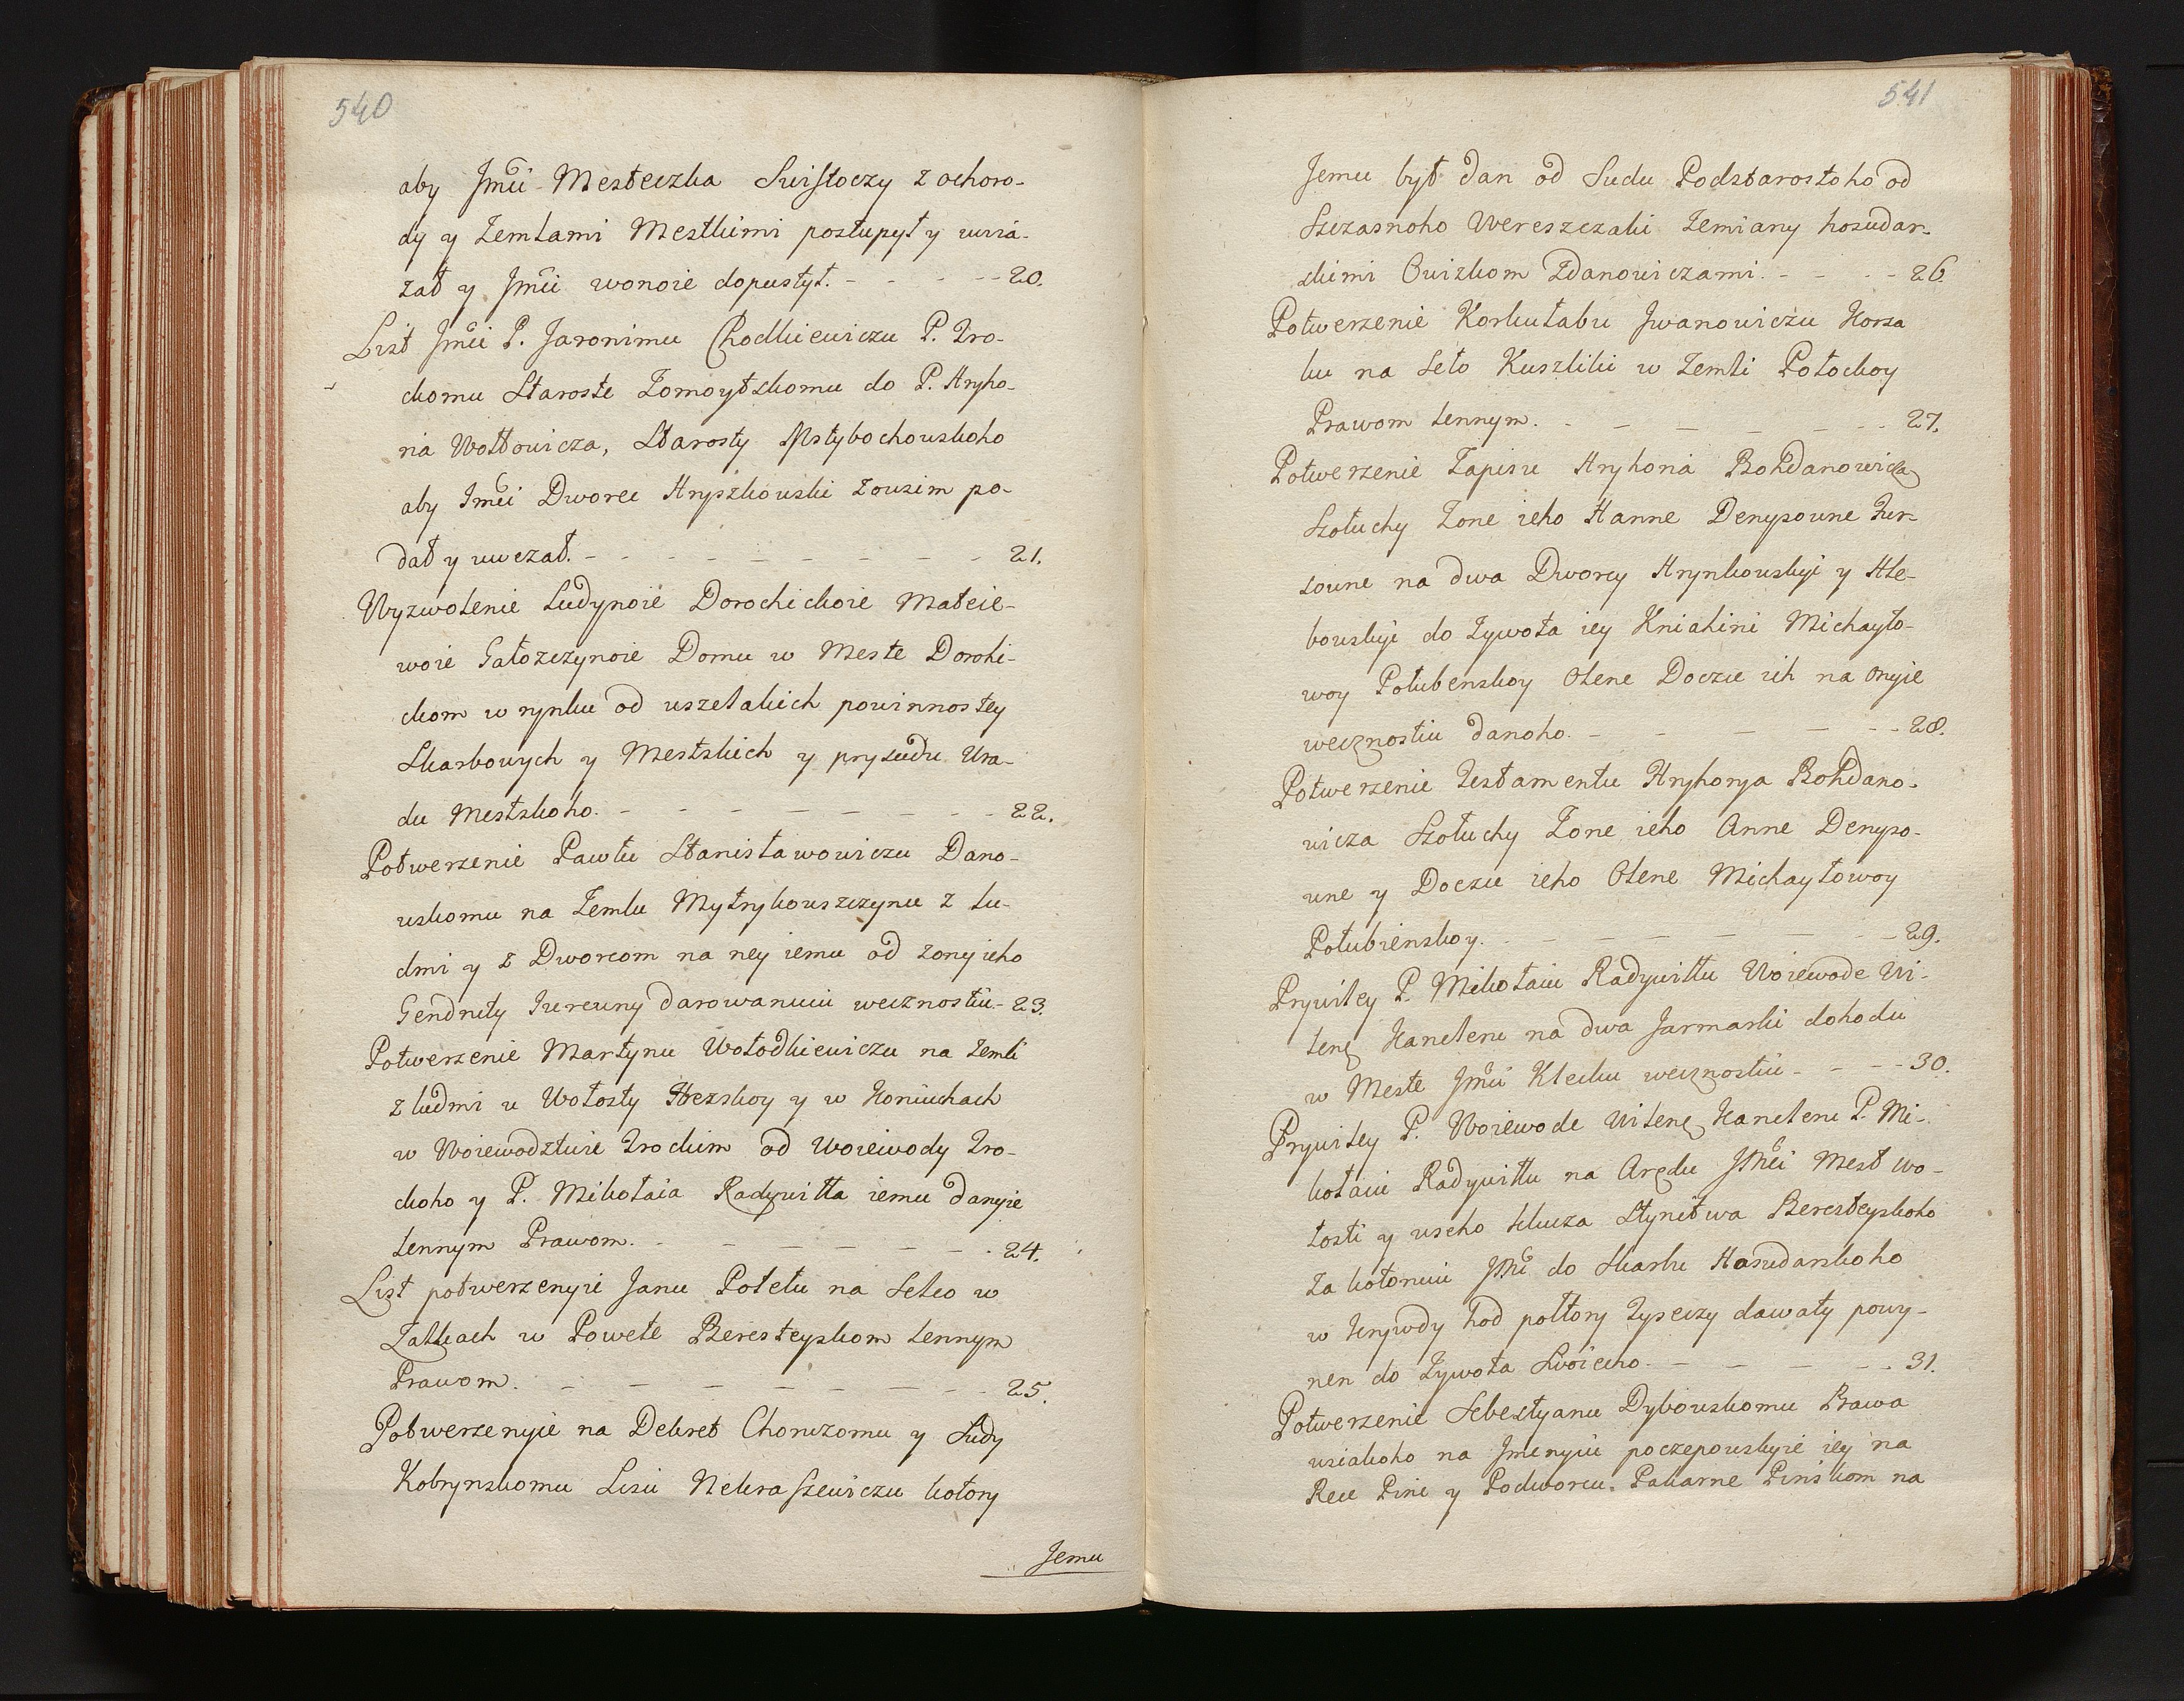 540
aby Jmći Mesteczka Swisłoczy z ochoro-
dy y Zemlami Mestkimi postupył y uwia-
zał y Jmći wonoie dopustył. - - - - 20.
List Jmći P. Jaronimu Chodkiewiczu P. Tro-
ckomu Staroste Żomoytskomu do P. Hryho-
ria Wołłowicza, Starosty Mstybochowskoho
aby Jmći Dworec Hryszkowski zo wsim po-
dał y uwezał. - - - - - - - - 21.
Wyzwolenie Ludynoie Dorochickoie Mateie-
woie Gałozczynoie Domu w Meste Dorohi-
ckom w rynku od wszelakich powinnostey
Skarbowych y Mestskich y prysudu Ura-
du Mestskoho. - - - - - - - 22.
Potwerzenie Pawłu Stanisławowiczu Dano-
wskomu na Zemlu Mytrykowszczynu z lu-
dmi y z Dworcom na ney iemu od zony ieho
Gendruty Jurewny darowanuiu wecznostiu - 23.
Potwerzenie Martynu Wołodkiewiczu na Zemli
z ludmi u Wołosty y w Koniuchach
w Woiewodztwie Trockim od Woiewody Tro-
ckoho y P. Mikołaia Radywiłła iemu danyie
Lennym Prawom. - - - - - - 24.
List potwerzenyie Janu Poteiu na Selco w
Zalkach w Powete Beresteyskom Lennym
Prawom. - - - - - - - - 25.
Potwerzenyie na Dekret Choruzomu y Sudy
Kobrynskomu Lwu Nekraszewiczu kotory
Jemu
541
Jemu był dan od Sudu Podstarostoho od
Szczasnoho Wereszczaki Zemiany hosudar-
skimi Owizkom Zdanowiczami. - - - - 26.
Potwerzenie Korkutabu Jwanowiczu Korsa
ku na Seło Kuszliki w Zemli Połockoy
Prawom Lennym. - - - - - - - 27.
Potwerzenie Zapisu Hryhoria Bohdanowicza
Szołuchy Żone ieho Hanne Denysowne Fur-
sowne na dwa Dworcy Hrynkowskyi y Hle-
bowskyi do Żywota iey Kniahini Michayło-
woy Połubenskoy Olene Doczce ich na onyie
wecznostiu danoho. - - - - - - 28.
Potwerzenie Testamentu Hryhorya Bohdano-
wicza Szołuchy Żone ieho Anne Denyso-
wne y Doczce ieho Olene Michayłowoy
Połubienskoy. - - - - - - - 29.
Prywiley P. Mikołaiu Radywiłłu Woiewode Wi-
lenę Kancleru na dwa Jarmarki dohodu
w Meste Jmći Klecku wecznostiu - - - - 30.
Prywiley P. Woiewode Wilenę Kancleru P. Mi-
kołaiu Radywiłłu na Arędu Jmći Mest wo-
łosti y wseho klucza Stynctwa Beresteyskoho
za kotoruiu Jmć do Skarbu Hosudarskoho
w kryżdy hod połtory tyseczy dawaty powy-
nen do Żywota Swoieho - - - - - 31.
Potwerzenie Sebestyanu Dybowskomu Prawa
wsiakoho na Jmenyie poczepowskyie iey na
Rece Pine y Podworcu. Pakarne Pińskom na